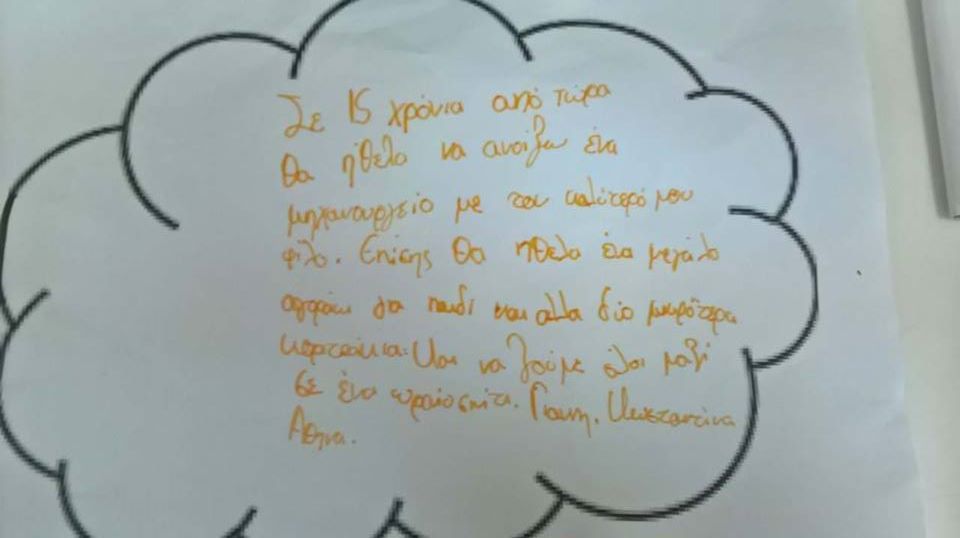 Σε 15 χρόνια από τώρα
θα ήθελα να ανοίξω ένα
μηχανουργείο με τον καλύτερό μου
φίλο. Επίσης θα ηθελα ένα μεγάλο
αγοράκι για παιδί και αλλα δύο μικρότερα
κοριτσάκια. Και να ζούμε όλοι μαζί
σε ένα ωραίο σπίτι. Γιαννη, Κωσταντίνα
Αθηνα.